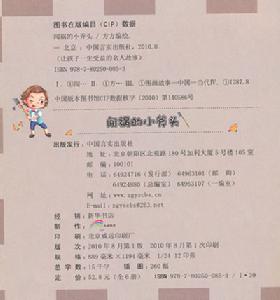 图书在版编目（CIP）数据
闯祸的小斧头／方方编绘.
—北京：中国言实出版社，2010.8
（让孩子一生受益的名人故事）
ISBN 978-7-80250-085-3
Ⅰ.①闯… Ⅱ.①方… Ⅲ.①图画故事—中国—当代 Ⅳ.①I287.8
中国版本图书馆CIP数据核字（2010）第
闯祸的小斧头
出版发行：中国言实出版社
地 址：北京朝阳区北苑路180号加利大厦5号楼105室
邮 编：100101
电 话：64924716（发行部）64963101（邮 购）
64924880（总编室）64963107（一编部）
网 址：www.zgyscbs.cn
E-mail：zgyscbs@263.net
经 销：新华书店
印 刷：北京
版 次：2010年8月第1版 2010年8月第1次印刷
规 格：889毫米×1194毫米 1/24 12印张
总 字 数：15千字 插图260幅
定 价：52.8元（全6册） ISBN 978-7-80250-085-3